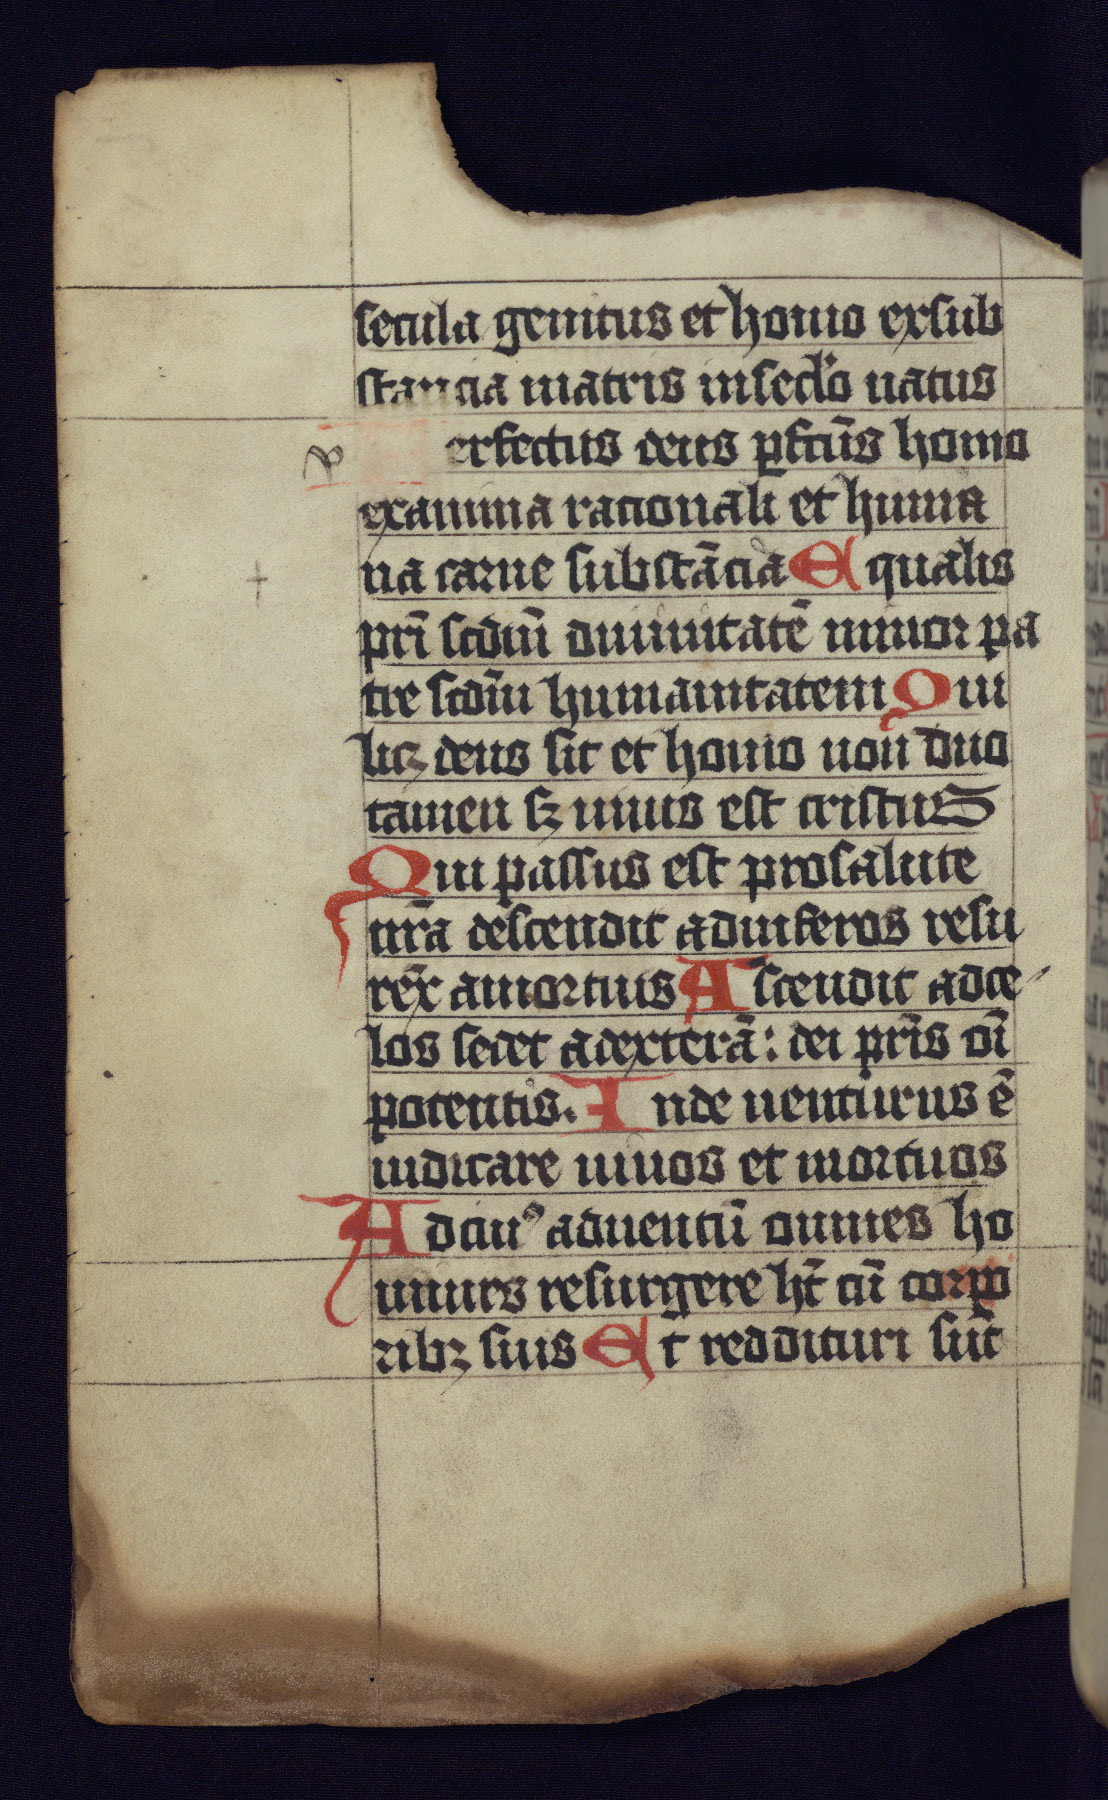 secula genitus et homo exsub
stancia matris insecl'o natus
erfectus deus ꝑfcūs homo
exanima racionali et huma
na carne substācia Equalis
pr̄i scdm̄ diuinitatē minor pa
tre scdm̄ humanitatem Qui
licꝫ deus sit et homo non duo
tamen sꝫ unus est cristus
Qui passus est prosalute
nr̄a descendit adinferos resu
rex̄ amortuis Ascendit adce
los sedet adexterā: dei pr̄is oī
potentis. Inde uenturus ē
iudicare uiuos et mortuos
Adcuiꝰ aduentū omnes ho
mines resurgere hn̄t cū corpo
ribꝫ suis Et reddituri sūt